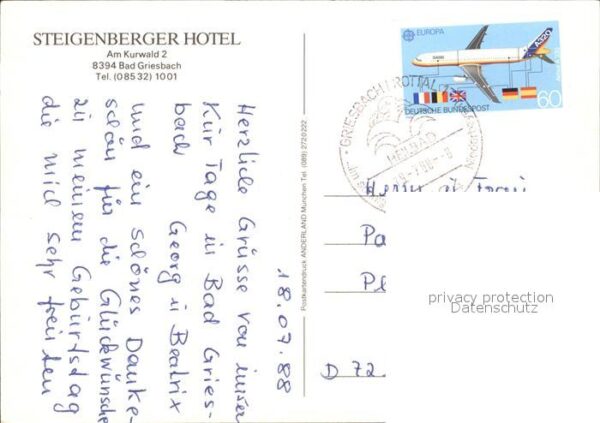 STEIGENBERGER HOTEL
Am Kurwald 2
8394 Bad Griesbach
Tel. (085 32) 1001
Herzliche Grüsse von unseren
Kur Tage in Bad Gries-
bach Georg u Beatrix
und ein schönes Danke-
schön für die Glückwünsche
zu meinem Geburtstag
die mich sehr freuten
18.07.88
Postkartendruck ANDERLAND München Tel. (089) 2720222
EUROPA
A320
DEUTSCHE BUNDESPOST
60
GRIESBACH I ROTTAL
HEILBAD
Herrn u Frau
Pa
Pl
D 72
privacy protection
Datenschutz